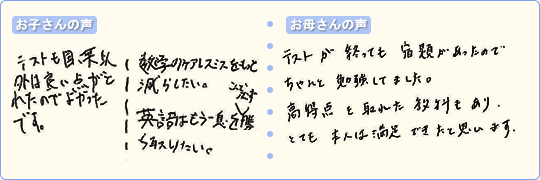 お子さんの声
テストも国、英以
外は良い点がと
れたのでよかった
です。
数学のケアレスミスをもっと
減らしたい。
英語はもう一息を
ちぢめたい。
お母さんの声
テストが終っても宿題があったので
ちゃんと勉強してました。
高得点を取れた教科もあり、
とても本人は満足できたと思います。